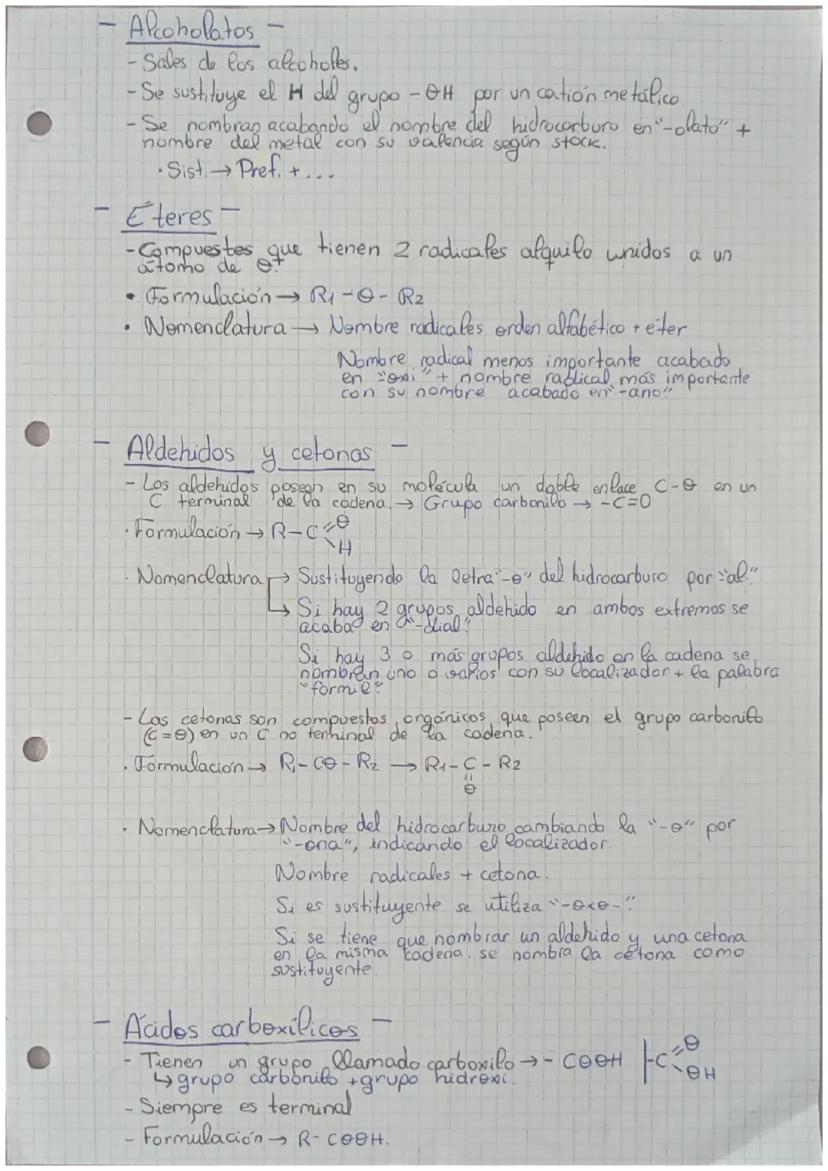 - Alcoholatos -
- Sales de los alcoholes.
- Se sustituye el H del grupo -OH por un catión metálico
- Se nombran acabando el nombre del hidrocarburo en "-olato" +
nombre del metal con su valencia según stock.
· Sist. → Pref. + ...
- Éteres -
- Compuestos que tienen 2 radicales alquilo unidos a un
átomo de O.
• Formulación → R1-O-R2
• Nomenclatura → Nombre radicales orden alfabético + éter
Nombre radical menos importante acabado
en "oxi" + nombre radical más importante
con su nombre acabado en "-ano".
- Aldehidos y cetonas -
- Los aldehidos poseen en su molécula un doble enlace C-O en un
C terminal de la cadena. → Grupo carbonilo → -C=O
· Formulación → R-C=O
H
· Nomenclatura → Sustituyendo la letra "-o" del hidrocarburo por "al."
↳ Si hay 2 grupos aldehido en ambos extremos se
acaba en "-dial".
Si hay 3 o más grupos aldehido en la cadena se
nombran uno o varios con su localizador + la palabra
"formil".
- Las cetonas son compuestos orgánicos que poseen el grupo carbonilo
(C=O) en un C no terminal de la cadena.
· Formulación → R1-CO-R2 → R1-C-R2
=
O
· Nomenclatura → Nombre del hidrocarburo cambiando la "-o" por
"-ona", indicando el localizador.
Nombre radicales + cetona.
Si es sustituyente se utiliza "-oxo-".
Si se tiene que nombrar un aldehido y una cetona
en la misma cadena, se nombra la cetona como
sustituyente.
- Ácidos carboxílicos -
- Tienen un grupo llamado carboxilo → - COOH |-C=O
OH
↳ grupo carbonilo + grupo hidroxi.
- Siempre es terminal
- Formulación → R-COOH.